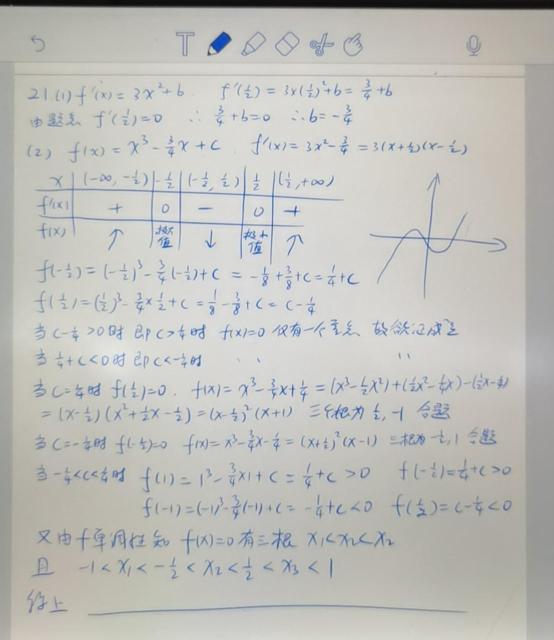 21.(1) f'(x)=3x²+b f'(½)=3×(½)²+b=¾+b
由题意 f'(½)=0 ∴ ¾+b=0 ∴b=-¾
(2) f(x)=x³-¾x+c f'(x)=3x²-¾=3(x+½)(x-½)
x (-∞,-½) -½ (-½,½) ½ (½,+∞)
f'(x) + 0 - 0 +
f(x) ↑ 极大值 ↓ 极小值 ↑
f(-½)=(-½)³-¾(-½)+c=-⅛+⅜+c=¼+c
f(½)=(½)³-¾×½+c=⅛-⅜+c=c-¼
当 c-¼>0时 即c>¼时 f(x)=0 仅有一个零点 故欲证成立
当 ¼+c<0时 即c<-¼时 〃 〃
当c=¼时 f(½)=0. f(x)=x³-¾x+¼=(x³-½x²)+(½x²-¼x)-(½x-¼)
=(x-½)(x²+½x-½)=(x-½)²(x+1) 三个根为½,-1 合题
当c=-¼时 f(-½)=0 f(x)=x³-¾x-¼=(x+½)²(x-1) 三根为-½,1 合题
当-¼<c<¼时 f(1)=1³-¾×1+c=¼+c>0 f(-½)=¼+c>0
f(-1)=(-1)³-¾(-1)+c=-¼+c<0 f(½)=c-¼<0
又由f单调性知 f(x)=0有三根 x₁<x₂<x₂
且 -1<x₁<-½<x₂<½<x₃<1
综上